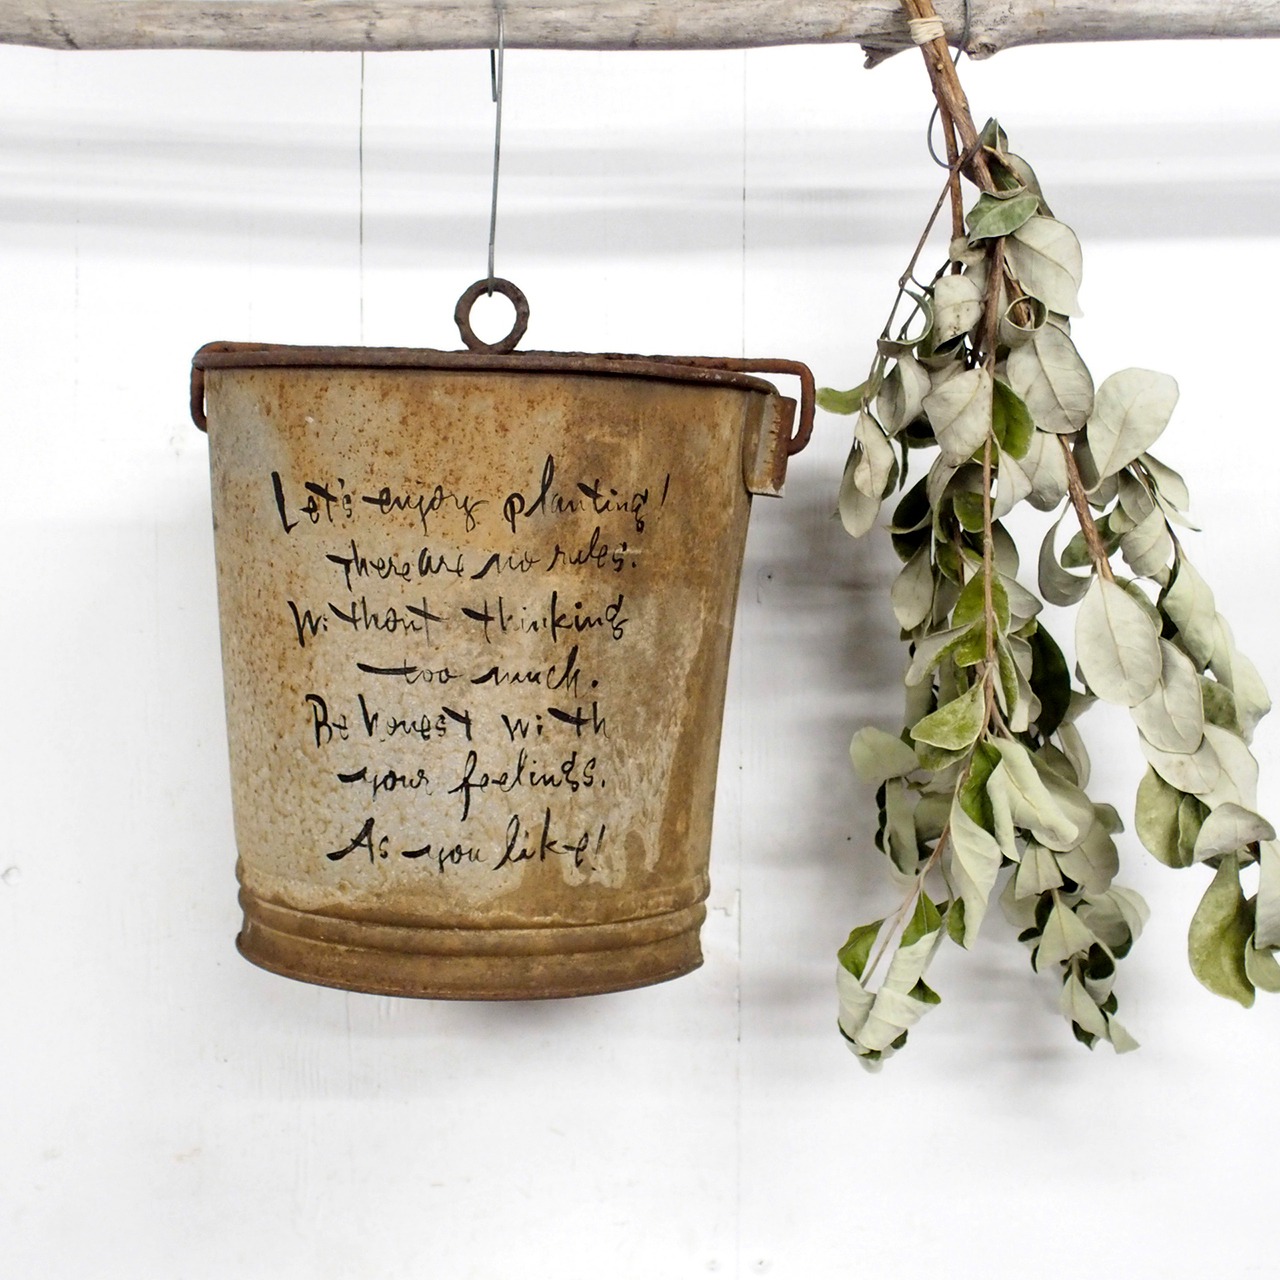 Let's enjoy planting!
There are no rules.
Without thinking
too much.
Be honest with
your feelings.
As you like!